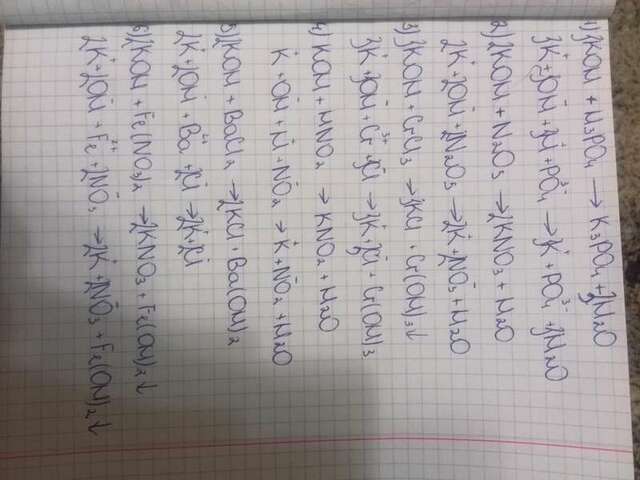 1) 3KOH + H3PO4 → K3PO4 + 3H2O
3K⁺ + 3OH⁻ + 3H⁺ + PO4³⁻ → 3K⁺ + PO4³⁻ + 3H2O
2) 2KOH + N2O5 → 2KNO3 + H2O
2K⁺ + 2OH⁻ + N2O5 → 2K⁺ + 2NO3⁻ + H2O
3) 3KOH + CrCl3 → 3KCl + Cr(OH)3↓
3K⁺ + 3OH⁻ + Cr³⁺ + 3Cl⁻ → 3K⁺ + 3Cl⁻ + Cr(OH)3
4) KOH + HNO2 → KNO2 + H2O
K⁺ + OH⁻ + H⁺ + NO2⁻ → K⁺ + NO2⁻ + H2O
5) 2KOH + BaCl2 → 2KCl + Ba(OH)2
2K⁺ + 2OH⁻ + Ba²⁺ + 2Cl⁻ → 2K⁺ + 2Cl⁻
6) 2KOH + Fe(NO3)2 → 2KNO3 + Fe(OH)2↓
2K⁺ + 2OH⁻ + Fe²⁺ + 2NO3⁻ → 2K⁺ + 2NO3⁻ + Fe(OH)2↓